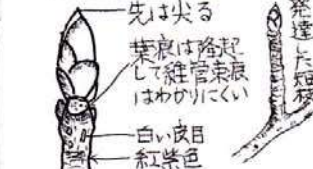 先は尖る
葉痕は隆起
して維管束痕
はわかりにくい
白い皮目
紅紫色
発達した短枝